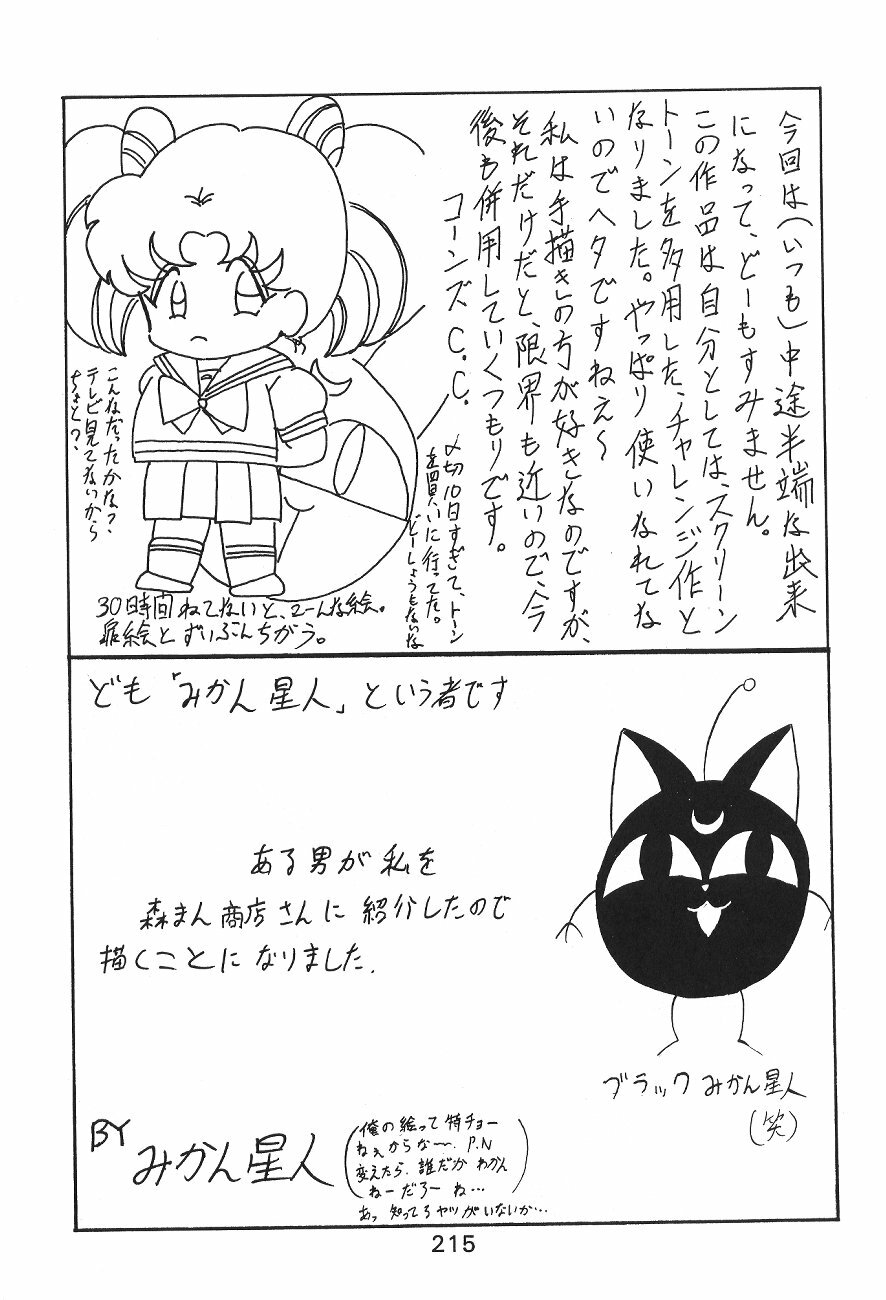 今回は(いつも)中途半端な出来
になって、どーもすみません。
この作品は自分としては、スクリーン
トーンを多用した、チャレンジ作と
なりました。やっぱり使いなれてな
いのでヘタですねえ〜
私は手描きの方が好きなのですが、
それだけだと、限界も近いので、今
後も併用していくつもりです。
コーンズC.C.
〆切10日すぎて、トーン
を買いに行ってた。
どーしょうもないな
こんなだったかな?
テレビ見てないから
ちょっと?、
30時間ねてないと、こーんな絵。
扉絵とずいぶんちがう。
ども「みかん星人」という者です
ある男が私を
森まん商店さんに紹介したので
描くことになりました.
ブラックみかん星人
(笑)
BY
みかん星人
(俺の絵って特チョー
ねぇからな〜. P.N
変えたら.誰だかわかん
ねーだろーね…)
あっ知ってるヤツがいないか…
215